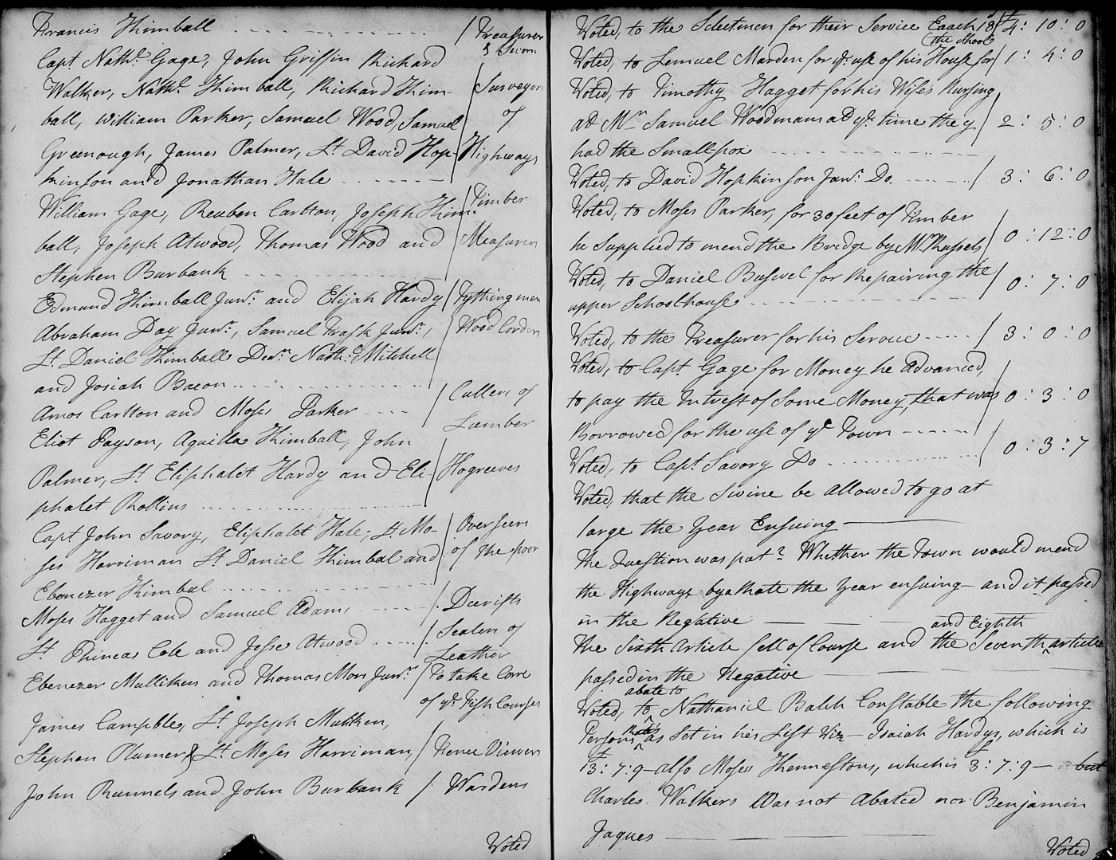 Francis Kimball ............ / Treasurer & Sworn
Capt Nathl. Gage, John Griffin Richard
Walker, Nathl. Kimball, Richard Kim- / Surveyors
ball, William Parker, Samuel Wood, Samuel of
Greenough, James Palmer, Lt. David Hop- Highways
kinson and Jonathan Hale
William Gage, Reuben Carlton, Joseph Kim- Timber
ball, Joseph Atwood, Thomas Wood and Measurers
Stephen Burbank
Edmund Kimball Junr. and Elijah Hardy / Tythingmen
Abraham Day Junr., Samuel Trask Junr., / Wood Corders
Lt. Daniel Kimball Dean. Nathl. Mitchell
and Josiah Bacon
Amos Carlton and Moses Parker / Cullers of Lumber
Eliot Payson, Aquilla Kimball, John
Palmer, Lt. Eliphalet Hardy and Eli- / Hogreeves
phalet Rollins
Capt John Savory, Eliphalet Hale, Lt. Mo- / Overseers
ses Harriman Lt. Daniel Kimbal and of the poor
Ebenezer Kimbal
Moses Hagget and Samuel Adams / Deerifts
Lt. Phineas Cole and Jesse Atwood / Sealers of Leather
Ebenezer Mulliken and Thomas Mors Junr. / To take Care of ye. Fish Courses
James Campble, Lt. Joseph Mulliken,
Stephen Plumer & Lt. Moses Harriman / Fence Viewers
John Runnels and John Burbank / Wardens
Voted
Voted, to the Selectmen for their Service Eaach 18/ £4 : 10 : 0
Voted, to Lemuel Marden for ye. use of his House for (the School / 1 : 4 : 0
Voted, to Timothy Hagget for his Wifes Nursing
at Mr. Samuel Woodmans at ye. time they / 2 : 5 : 0
had the Smallpox
Voted, to David Hopkinson Junr. Do. / 3 : 6 : 0
Voted, to Moses Parker, for 30 feet of Timber
he Supplied to mend the Bridge by Mr. Russels / 0 : 12 : 0
Voted, to Daniel Buswel for Repairing the / 0 : 7 : 0
upper Schoolhouse
Voted, to the Treasurer for his Service / 3 : 0 : 0
Voted, to Capt Gage for Money he Advanced,
to pay the Intrest of Some Money, that was 0 : 3 : 0
Borrowed for the use of ye Town
Voted, to Capt. Savory Do / 0 : 3 : 7
Voted, that the Swine be allowed to go at
large the Year Ensuing
The Question was put? Whether the Town would mend
the Highways by a Rate the Year ensuing - and it passed
in the Negative
The Sixth Article fell of Course and the Seventh and Eighth article
passed in the Negative
Voted, to abate to Nathaniel Balch Constable the following
Persons Rates as Set in his List Viz - Isaiah Hardys, which is
£3 : 7 : 9 - also Moses Thennestons, which is £3 : 7 : 9 - but
Charles Walkers Was not Abated nor Benjamin
Jaques
Voted